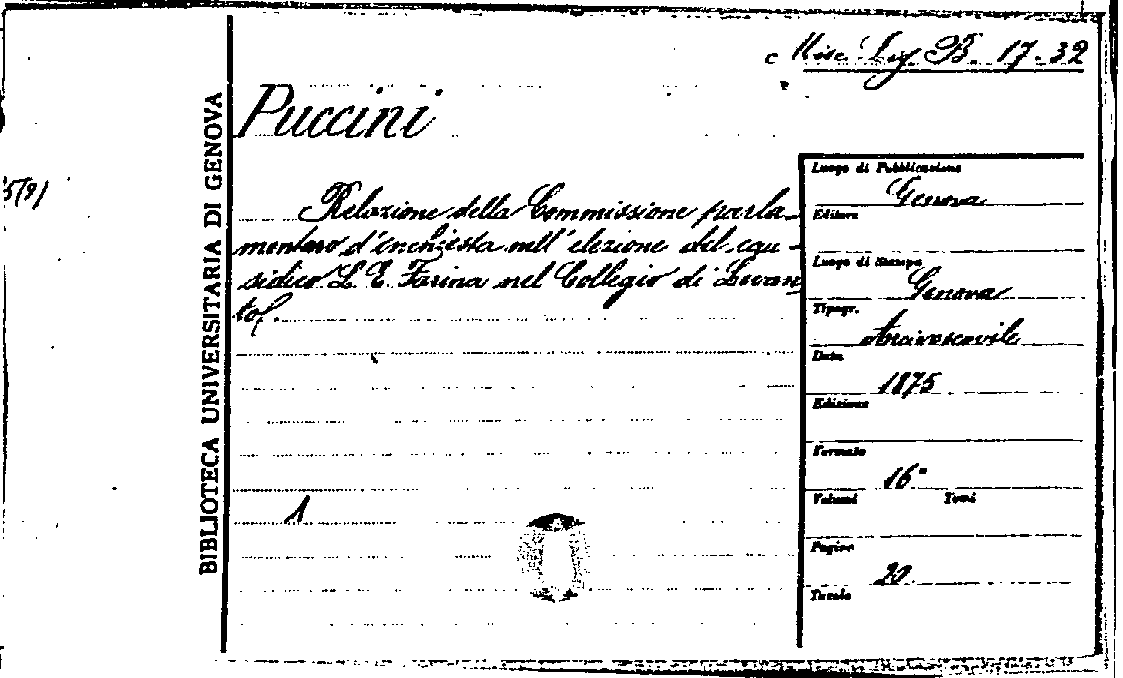 Misc. Lig. B. 17-32
BIBLIOTECA UNIVERSITARIA DI GENOVA
Puccini
Relazione della Commissione parla-
mentare d'inchiesta nell'elezione del
sidico L. E. Farina nel Collegio di Levan
to.
1
Luogo di Pubblicazione
Genova
Editore
Luogo di Stampa
Genova
Tipogr.
Arcivescovile
Data
1875
Edizione
Formato
16°
Volumi Tomi
Pagine
20
Tavole